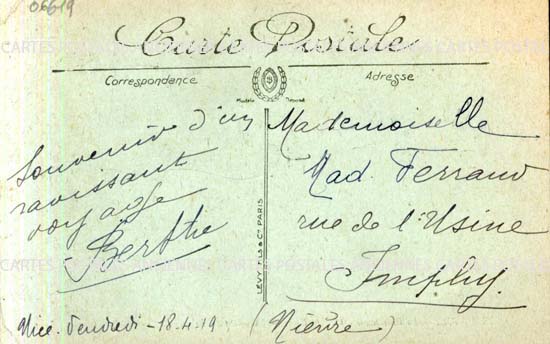 06619
Carte Postale
Correspondence
Adresse
Modèle Déposé
Souvenir d'un
ravissant
voyage
Berthe
Nice. Vendredi - 18.4.19
LÉVY FILS & Cie PARIS
Mademoiselle
Mad. Ferrand
rue de l'Usine
Imphy.
(Nièvre)